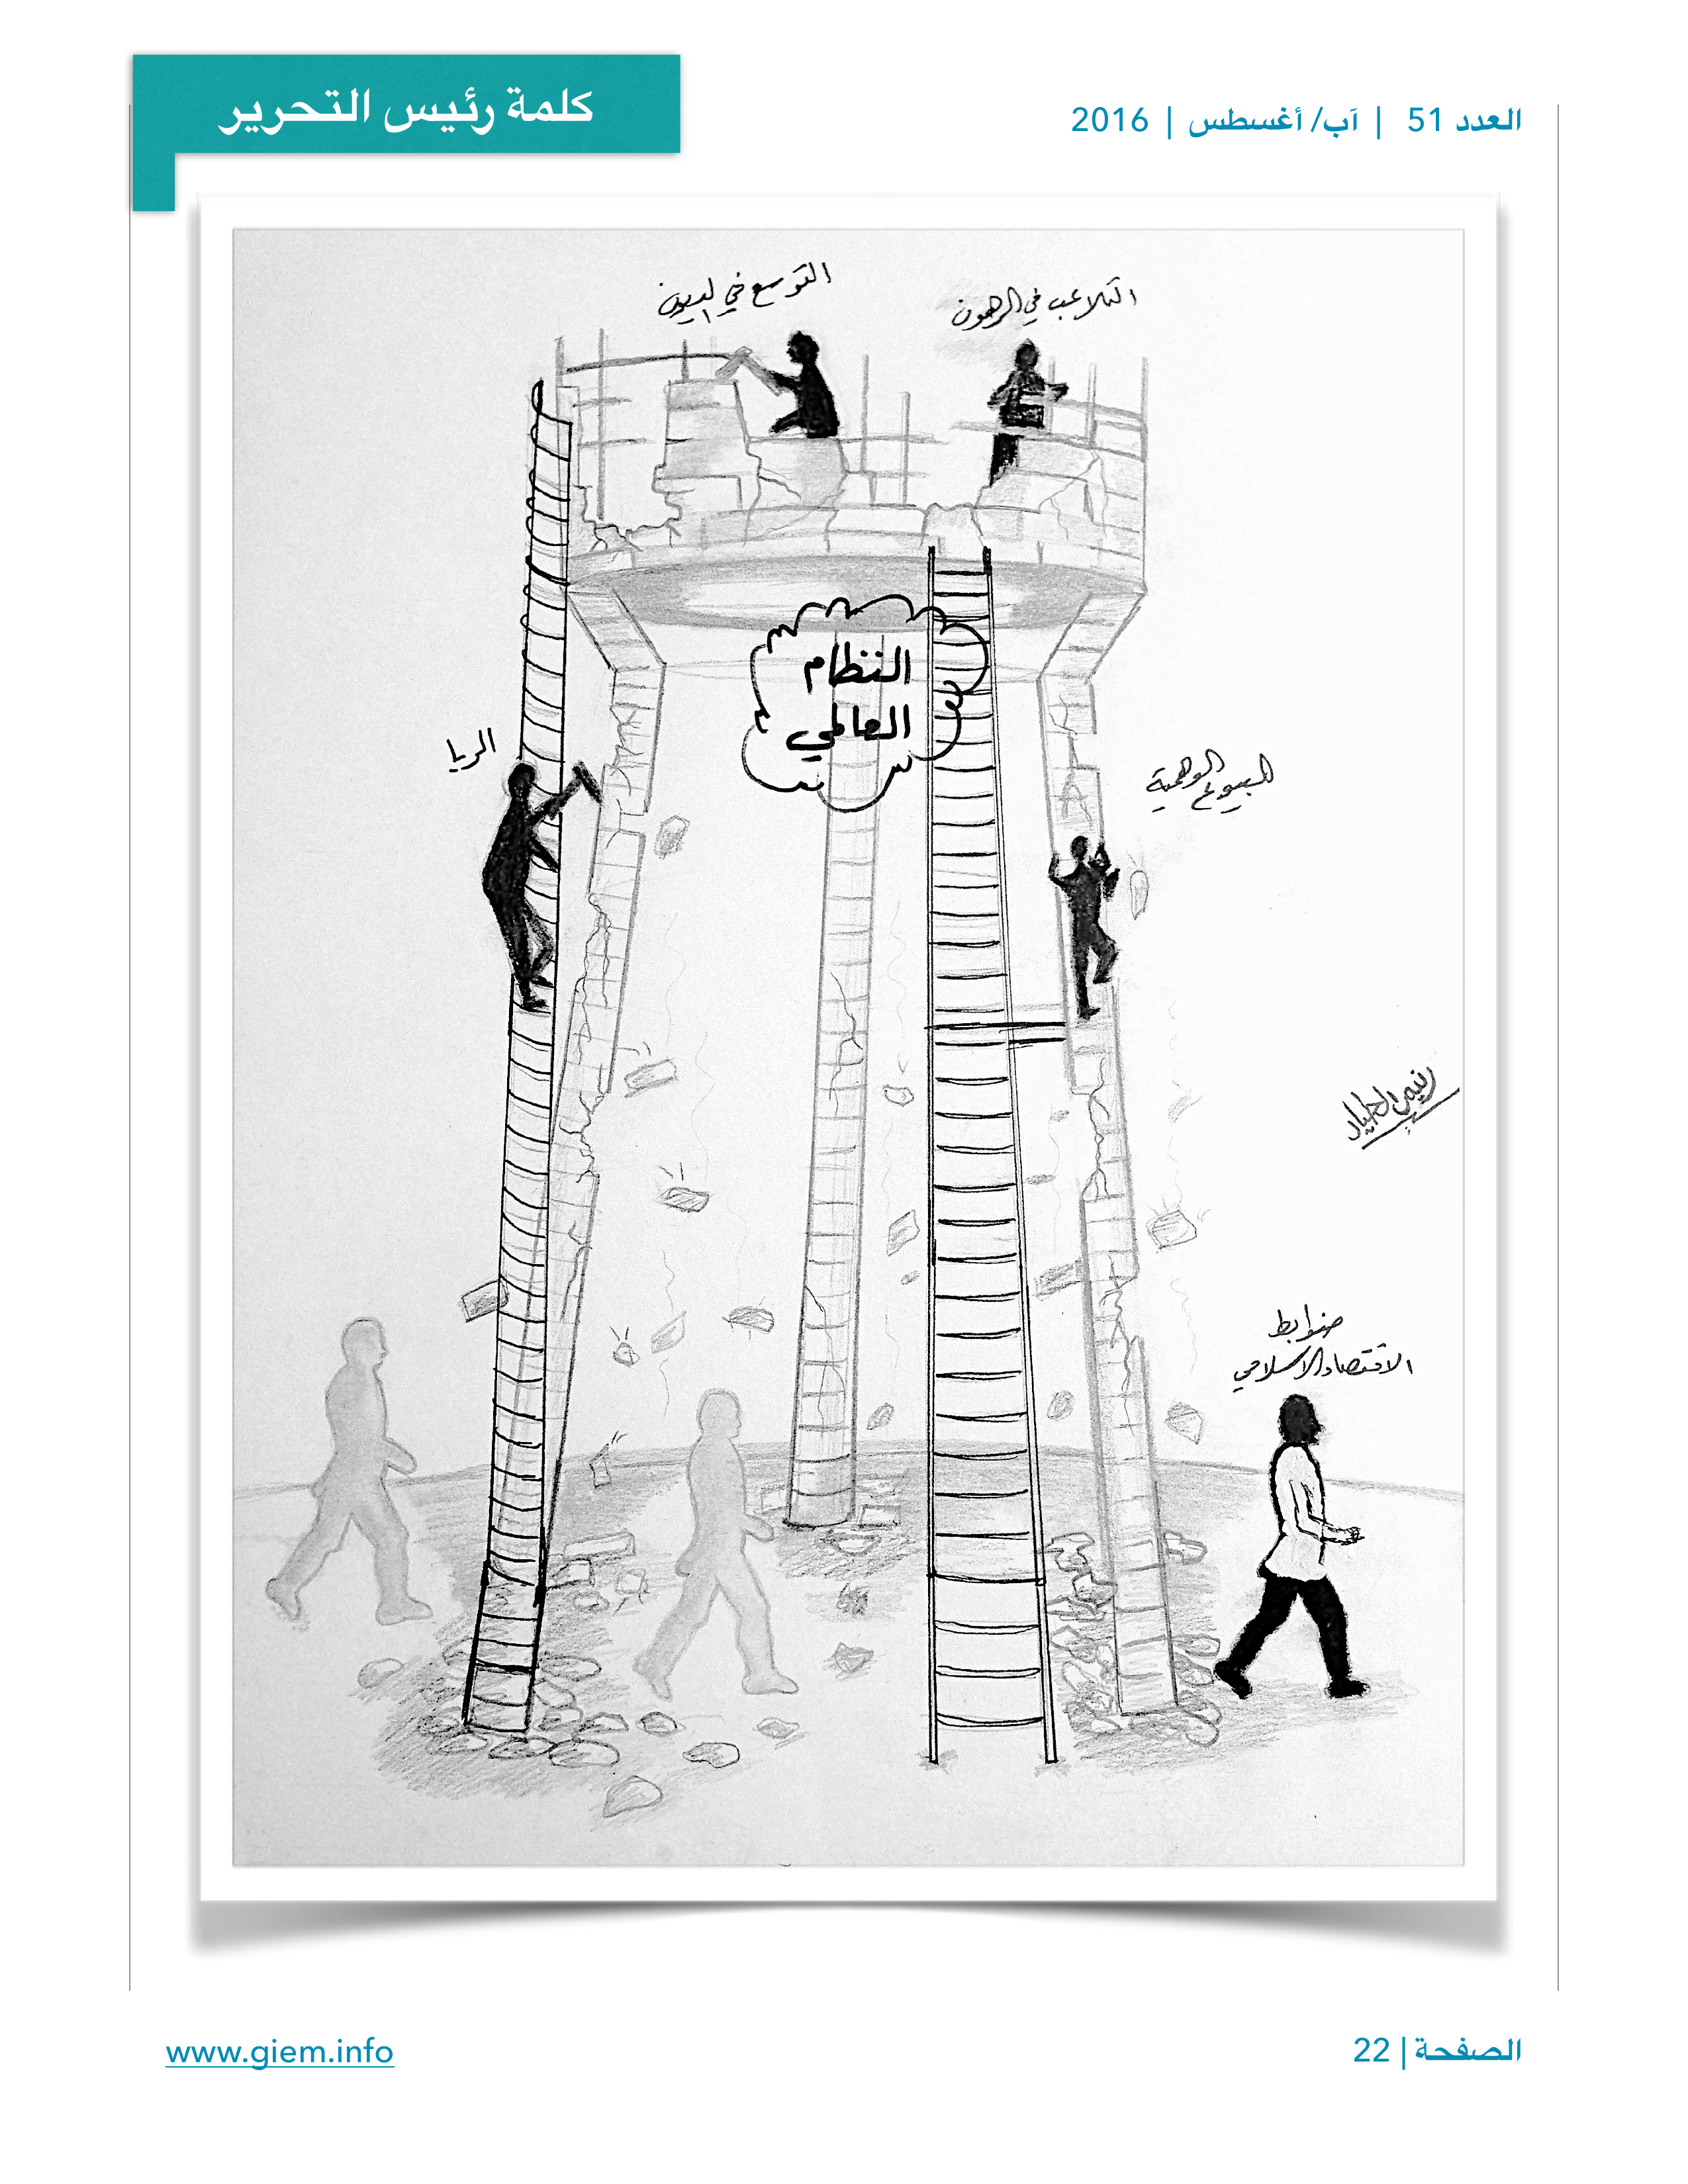 العدد 51 | آب/ أغسطس | 2016
كلمة رئيس التحرير
التلاعب في الرهون
التوسع في الديون
النظام
العالمي
الربا
البيوع الوهمية
ضوابط
الاقتصاد الاسلامي
الصفحة | 22
www.giem.info